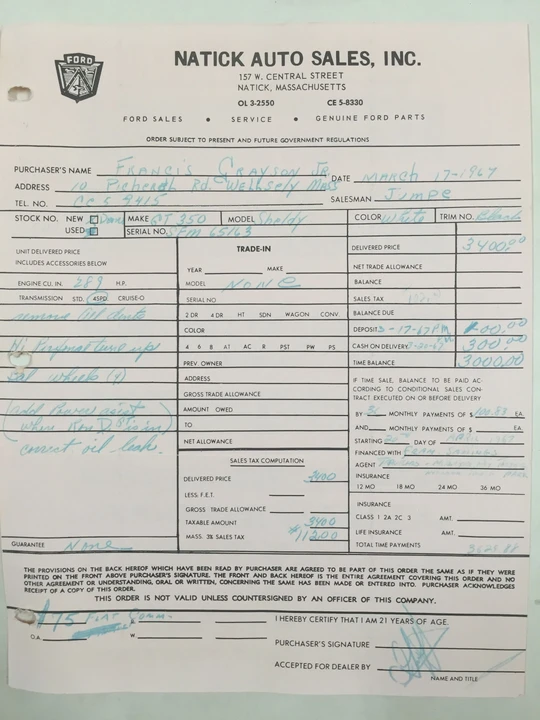 FORD
NATICK AUTO SALES, INC.
157 W. CENTRAL STREET
NATICK, MASSACHUSETTS
OL 3-2550 CE 5-8330
FORD SALES • SERVICE • GENUINE FORD PARTS
ORDER SUBJECT TO PRESENT AND FUTURE GOVERNMENT REGULATIONS
PURCHASER'S NAME Francis Grayson Jr. DATE March 17-1967
ADDRESS 10 Rd. Wellsely Mass
TEL. NO. CE 5 9415 SALESMAN Jimpe
STOCK NO. NEW Demo MAKE GT 350 MODEL Shelby COLOR White TRIM NO. Black
USED SERIAL NO. SFM 6S163
UNIT DELIVERED PRICE
INCLUDES ACCESSORIES BELOW
ENGINE CU. IN. 289 H.P.
TRANSMISSION STD. 4SPD CRUISE-O
remove all dents
Hi Performance tune up
Bal wheels (4)
(add Power assist
(when Kon D is in)
correct oil leak.
GUARANTEE None
TRADE-IN
YEAR MAKE
MODEL None
SERIAL NO
2 DR 4 DR HT SDN WAGON CONV.
COLOR
4 6 8 AT AC R PST PW PS
PREV OWNER
ADDRESS
GROSS TRADE ALLOWANCE
AMOUNT OWED
TO
NET ALLOWANCE
SALES TAX COMPUTATION
DELIVERED PRICE 3400
LESS: F.E.T.
GROSS TRADE ALLOWANCE
TAXABLE AMOUNT 3400
MASS. 3% SALES TAX
DELIVERED PRICE 3400.00
NET TRADE ALLOWANCE
BALANCE
SALES TAX
BALANCE DUE
DEPOSIT 3-17-67
CASH ON DELIVERY 300.00
TIME BALANCE 3000.00
IF TIME SALE, BALANCE TO BE PAID AC-
CORDING TO CONDITIONAL SALES CON-
TRACT EXECUTED ON OR BEFORE DELIVERY
BY 36 MONTHLY PAYMENTS OF $ EA.
AND MONTHLY PAYMENTS OF $ EA.
STARTING DAY OF
FINANCED WITH Fram. Savings
AGENT
INSURANCE
12 MO 18 MO 24 MO 36 MO
INSURANCE
CLASS 1 2A 2C 3 AMT.
LIFE INSURANCE AMT.
TOTAL TIME PAYMENTS
THE PROVISIONS ON THE BACK HEREOF WHICH HAVE BEEN READ BY PURCHASER ARE AGREED TO BE PART OF THIS ORDER THE SAME AS IF THEY WERE
PRINTED ON THE FRONT ABOVE PURCHASER'S SIGNATURE. THE FRONT AND BACK HEREOF IS THE ENTIRE AGREEMENT COVERING THIS ORDER AND NO
OTHER AGREEMENT OR UNDERSTANDING, ORAL OR WRITTEN, CONCERNING THE SAME HAS BEEN MADE OR ENTERED INTO. PURCHASER ACKNOWLEDGES
RECEIPT OF A COPY OF THIS ORDER.
THIS ORDER IS NOT VALID UNLESS COUNTERSIGNED BY AN OFFICER OF THIS COMPANY.
$75 Flat Comm.
O.A. W. R.
I HEREBY CERTIFY THAT I AM 21 YEARS OF AGE.
PURCHASER'S SIGNATURE
ACCEPTED FOR DEALER BY
NAME AND TITLE